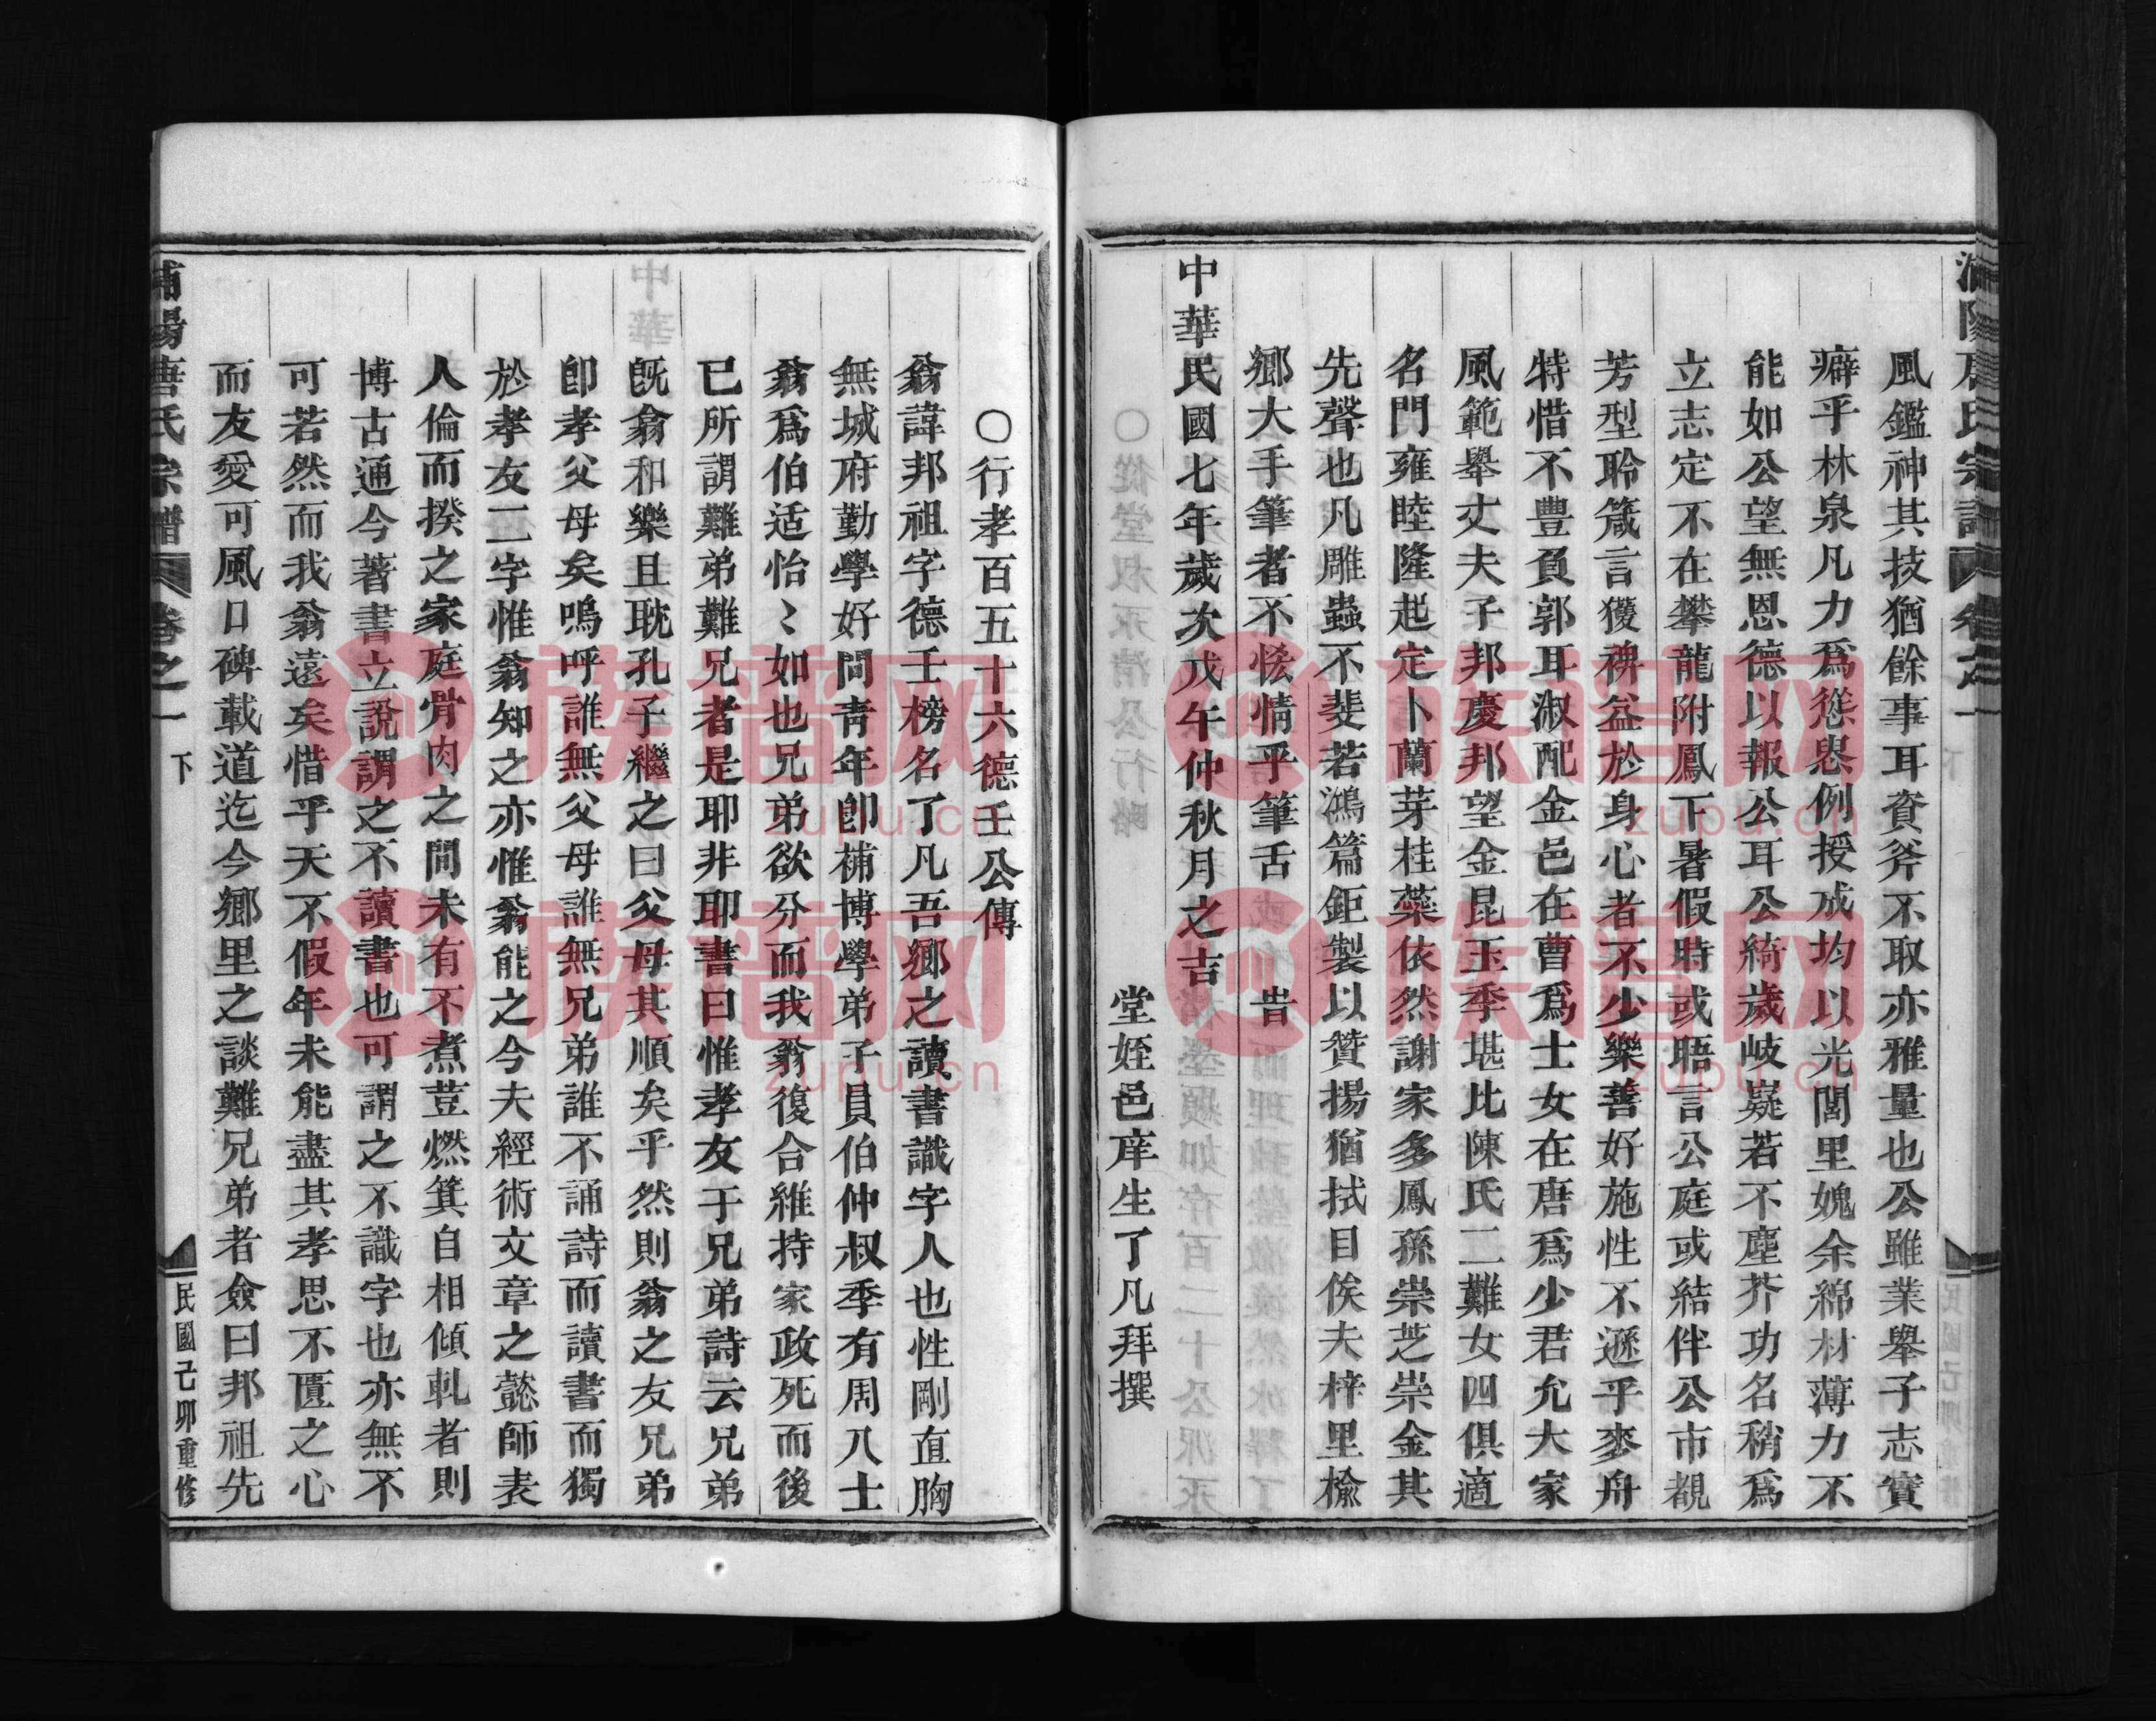 浦陽唐氏宗譜 卷之一
風鑑神其技猶餘事耳資斧不取亦雅量也公雖業舉子志實
癖乎林泉凡力爲慫恿例授成均以光閭里媿余綿材薄力不
能如公望無恩德以報公耳公綺歲岐嶷若不塵芥功名稍爲
立志定不在攀龍附鳳下暑假時或晤言公庭或結伴公市覩
芳型聆箴言獲裨益於身心者不少樂善好施性不遜乎麥舟
特惜不豐負郭耳淑配金邑在曹爲士女在唐爲少君允大家
風範舉丈夫子邦慶邦望金昆玉季堪比陳氏二難女四俱適
名門雍睦隆起定卜蘭芽桂蘂依然謝家多鳳孫崇芝崇金其
先聲也凡雕蟲不斐若鴻篇鉅製以贊揚猶拭目俟夫梓里檢
鄉大手筆者不恡情乎筆舌 旹
中華民國七年歲次戊午仲秋月之吉
堂姪邑庠生了凡拜撰
○行孝百五十六德壬公傳
翁諱邦祖字德壬榜名了凡吾鄉之讀書識字人也性剛直胸
無城府勤學好問青年卽補博學弟子員伯仲叔季有周八士
翁爲伯适怡〻如也兄弟欲分而我翁復合維持家政死而後
已所謂難弟難兄者是耶非耶書曰惟孝友于兄弟詩云兄弟
旣翕和樂且耽孔子繼之曰父母其順矣乎然則翁之友兄弟
卽孝父母矣嗚呼誰無父母誰無兄弟誰不誦詩而讀書而獨
於孝友二字惟翁知之亦惟翁能之今夫經術文章之懿師表
人倫而揆之家庭骨肉之間未有不煮荳燃箕自相傾軋者則
博古通今著書立說謂之不讀書也可謂之不識字也亦無不
可若然而我翁遠矣惜乎天不假年未能盡其孝思不匱之心
而友愛可風口碑載道迄今鄉里之談難兄弟者僉曰邦祖先
浦陽唐氏宗譜 卷之一 下 民國己卯重修